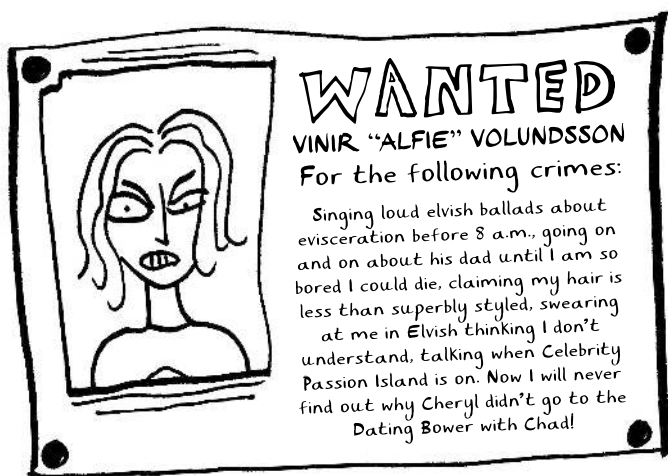 WANTED
VINIR “ALFIE” VOLUNDSSON
For the following crimes:
Singing loud elvish ballads about
evisceration before 8 a.m., going on
and on about his dad until I am so
bored I could die, claiming my hair is
less than superbly styled, swearing
at me in Elvish thinking I don’t
understand, talking when Celebrity
Passion Island is on. Now I will never
find out why Cheryl didn’t go to the
Dating Bower with Chad!